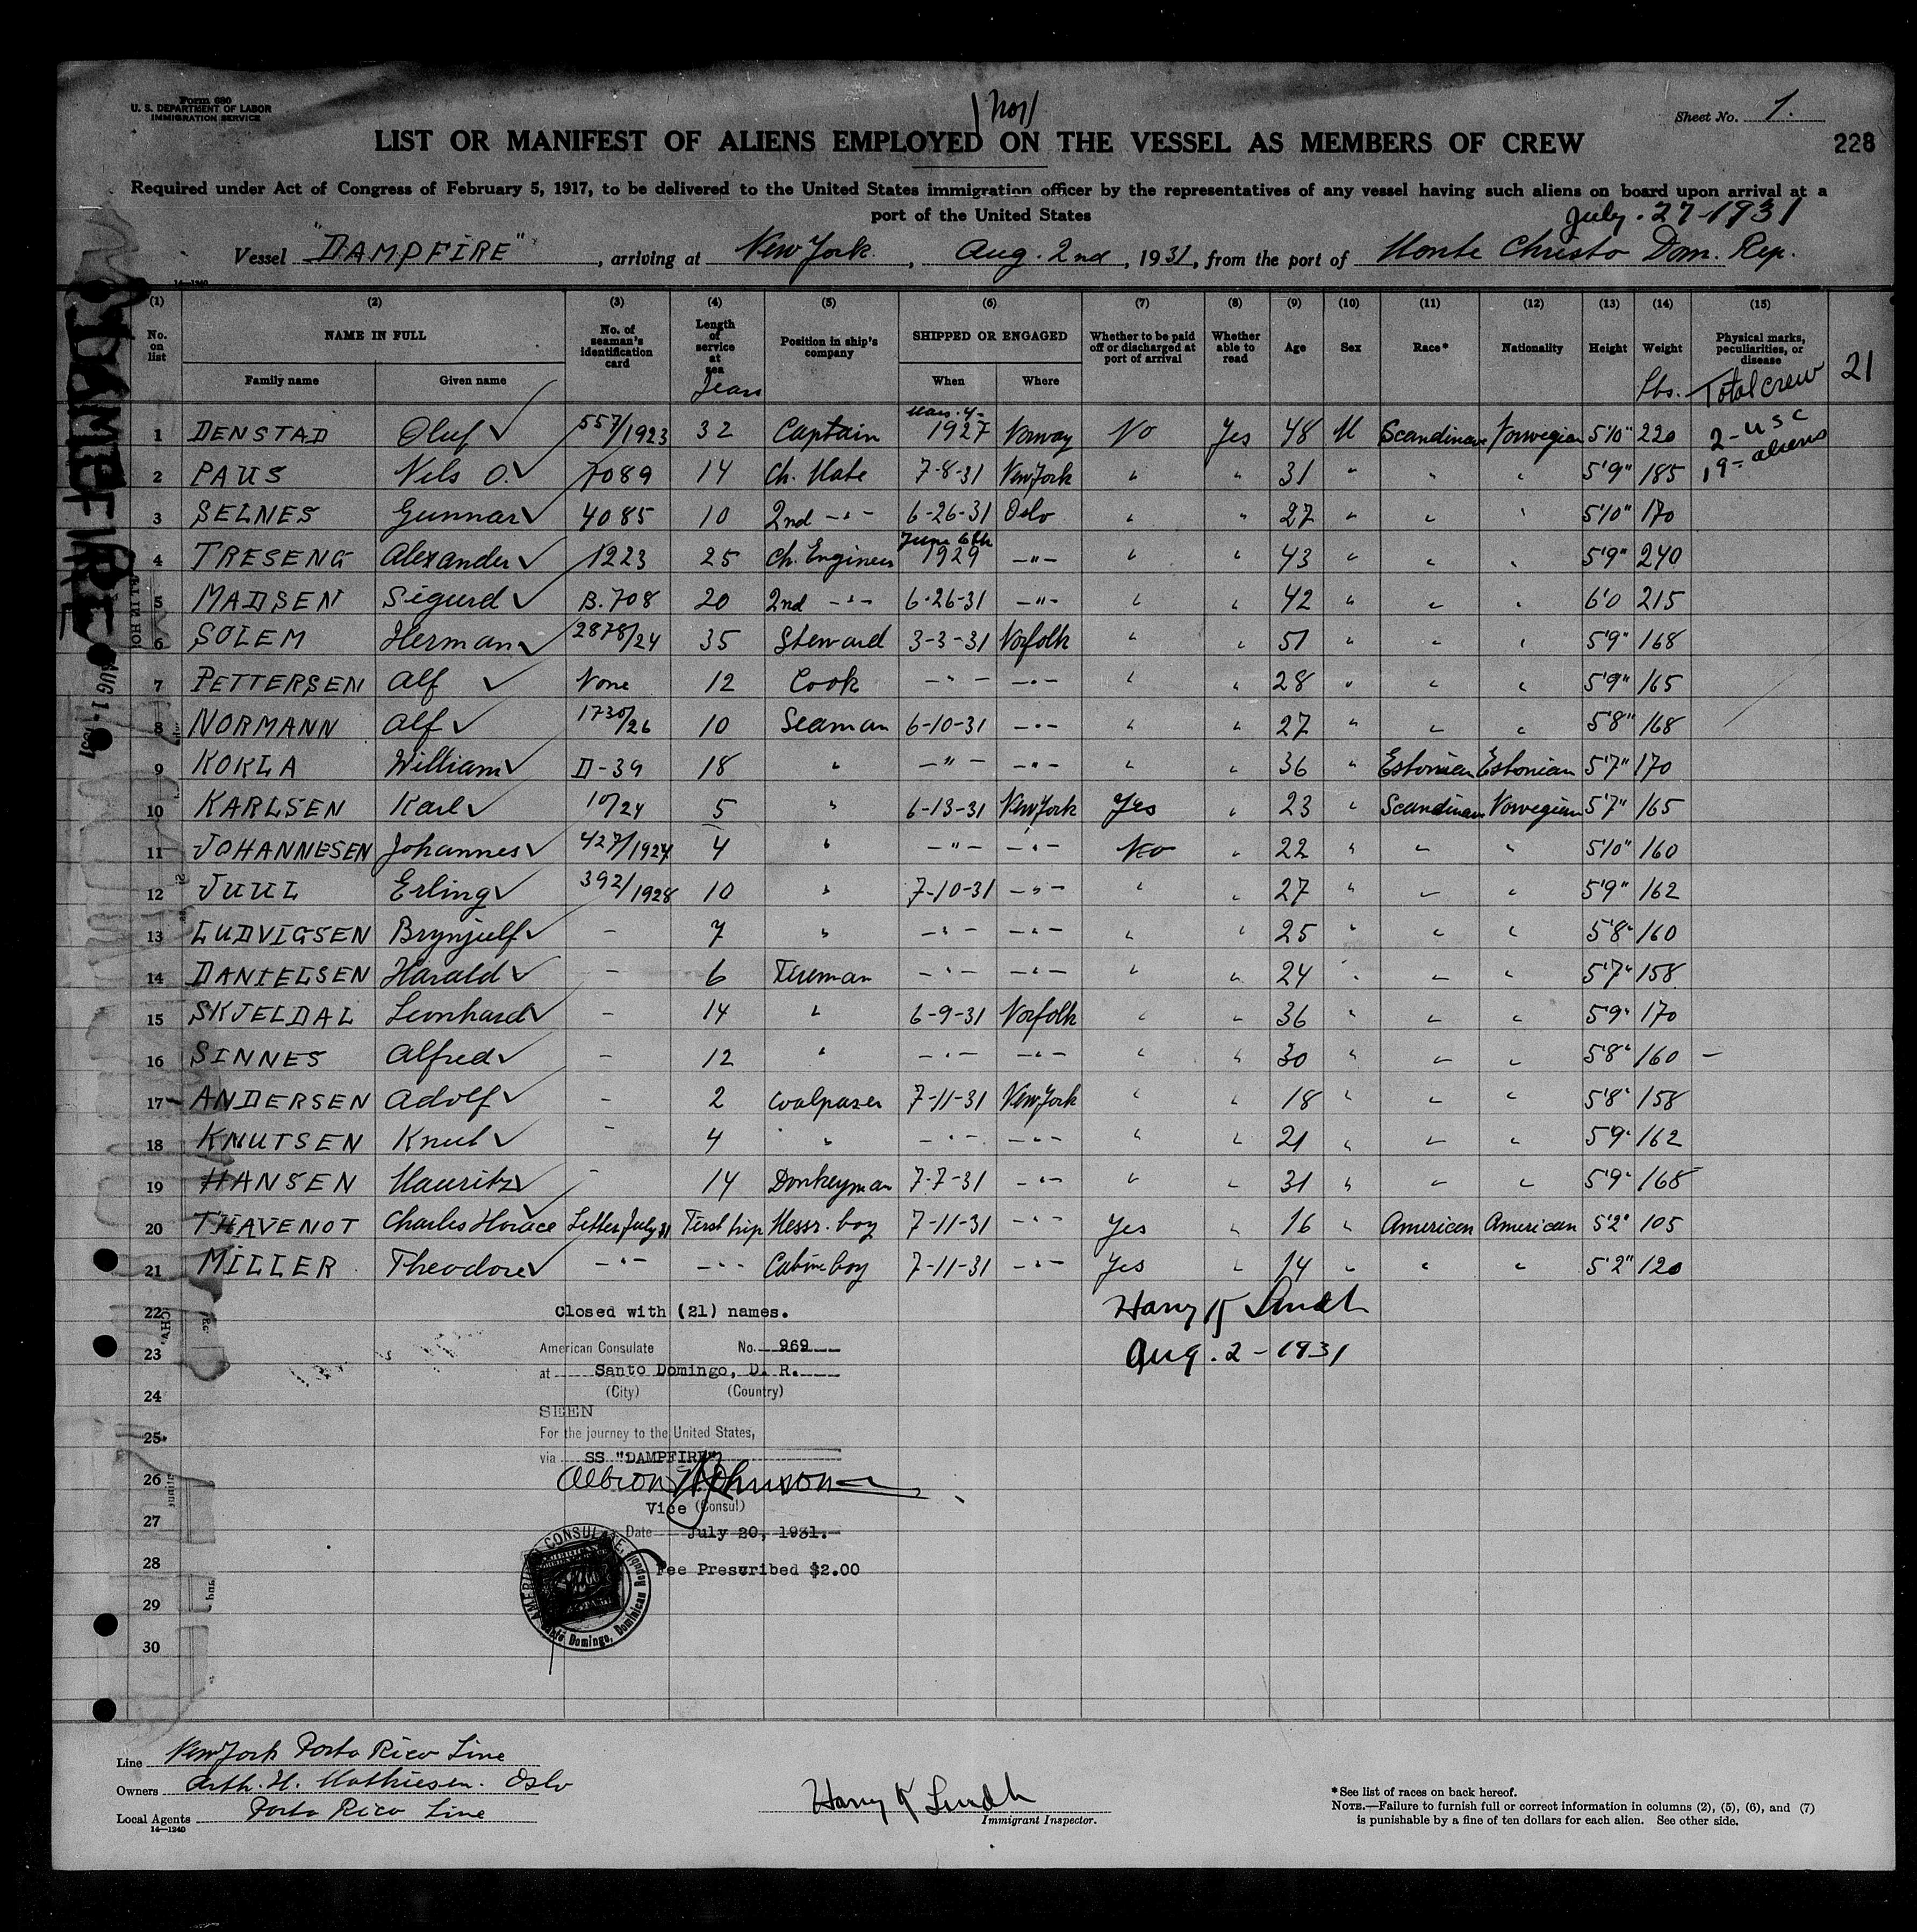 Form 680
U. S. DEPARTMENT OF LABOR
IMMIGRATION SERVICE
Sheet No. 1.
228
LIST OR MANIFEST OF ALIENS EMPLOYED ON THE VESSEL AS MEMBERS OF CREW
Required under Act of Congress of February 5, 1917, to be delivered to the United States immigration officer by the representatives of any vessel having such aliens on board upon arrival at a
port of the United States
July. 27-1931
Vessel "DAMPFIRE", arriving at New York, Aug. 2nd, 1931, from the port of Monte Christo Dom. Rep.
14—1240
(1) (2) (3) (4) (5) (6) (7) (8) (9) (10) (11) (12) (13) (14) (15)
No. on list NAME IN FULL Family name Given name No. of seaman's identification card Length of service at sea Years Position in ship's company SHIPPED OR ENGAGED When Where Whether to be paid off or discharged at port of arrival Whether able to read Age Sex Race* Nationality Height Weight Lbs. Physical marks, peculiarities, or disease
Total crew 21
2- USC
19- aliens
1 DENSTAD Oluf 557/1923 32 Captain Mars. 4- 1927 Norway No Yes 48 M Scandinave Norwegian 5'10" 220
2 PAUS Nils O. 7089 14 Ch. Mate 7-8-31 New York " " 31 " " " 5'9" 185
3 SELNES Gunnar 4085 10 2nd -"- 6-26-31 Oslo " " 27 " " " 5'10" 170
4 TRESENG Alexander 1223 25 Ch. Engineer June 6th 1929 -"- " " 43 " " " 5'9" 240
5 MADSEN Sigurd B.708 20 2nd -"- 6-26-31 -"- " " 42 " " " 6'0 215
6 SOLEM Herman 2878/24 35 Steward 3-3-31 Norfolk " " 51 " " " 5'9" 168
7 PETTERSEN Alf None 12 Cook -"- -"- " " 28 " " " 5'9" 165
8 NORMANN Alf 1730/26 10 Seaman 6-10-31 -"- " " 27 " " " 5'8" 168
9 KOKLA William D-39 18 " -"- -"- " " 36 " Estonian Estonian 5'7" 170
10 KARLSEN Karl 10/24 5 " 6-13-31 New York Yes " 23 " Scandinav Norwegian 5'7" 165
11 JOHANNESEN Johannes 427/1924 4 " -"- -"- No " 22 " " " 5'10" 160
12 JUUL Erling 392/1928 10 " 7-10-31 -"- " " 27 " " " 5'9" 162
13 LUDVIGSEN Brynjulf - 7 " -"- -"- " " 25 " " " 5'8" 160
14 DANIELSEN Harald - 6 Fireman -"- -"- " " 24 " " " 5'7" 158
15 SKJELDAL Leonhard - 14 " 6-9-31 Norfolk " " 36 " " " 5'9" 170
16 SINNES Alfred - 12 " -"- -"- " " 30 " " " 5'8" 160 -
17 ANDERSEN Adolf - 2 Coalpaser 7-11-31 New York " " 18 " " " 5'8" 158
18 KNUTSEN Knut - 4 " -"- -"- " " 21 " " " 5'9" 162
19 HANSEN Mauritz - 14 Donkeyman 7-7-31 -"- " " 31 " " " 5'9" 168
20 THAVENOT Charles Horace Letter July 31 First trip Messr. boy 7-11-31 -"- Yes " 16 " American American 5'2" 105
21 MILLER Theodore -"- -"- Cabine boy 7-11-31 -"- Yes " 14 " " " 5'2" 120
22
23
24
25
26
27
28
29
30
Closed with (21) names.
Harry K Lindh
Aug. 2-1931
American Consulate No. 969
at Santo Domingo, D. R.
(City) (Country)
SEEN
For the journey to the United States,
via SS "DAMPFIRE"
Albion W Johnson
Vice (Consul)
Date July 20, 1931.
Fee Prescribed $2.00
AMERICAN CONSULATE
Santo Domingo, Dominican Republic
DAMPFIRE
AUG 1-1931
Line New York Porto Rico Line
Owners Arth. H. Mathiesen. Oslo
Local Agents Porto Rico Line
14—1240
Harry K Lindh
Immigrant Inspector.
*See list of races on back hereof.
NOTE.—Failure to furnish full or correct information in columns (2), (5), (6), and (7)
is punishable by a fine of ten dollars for each alien. See other side.